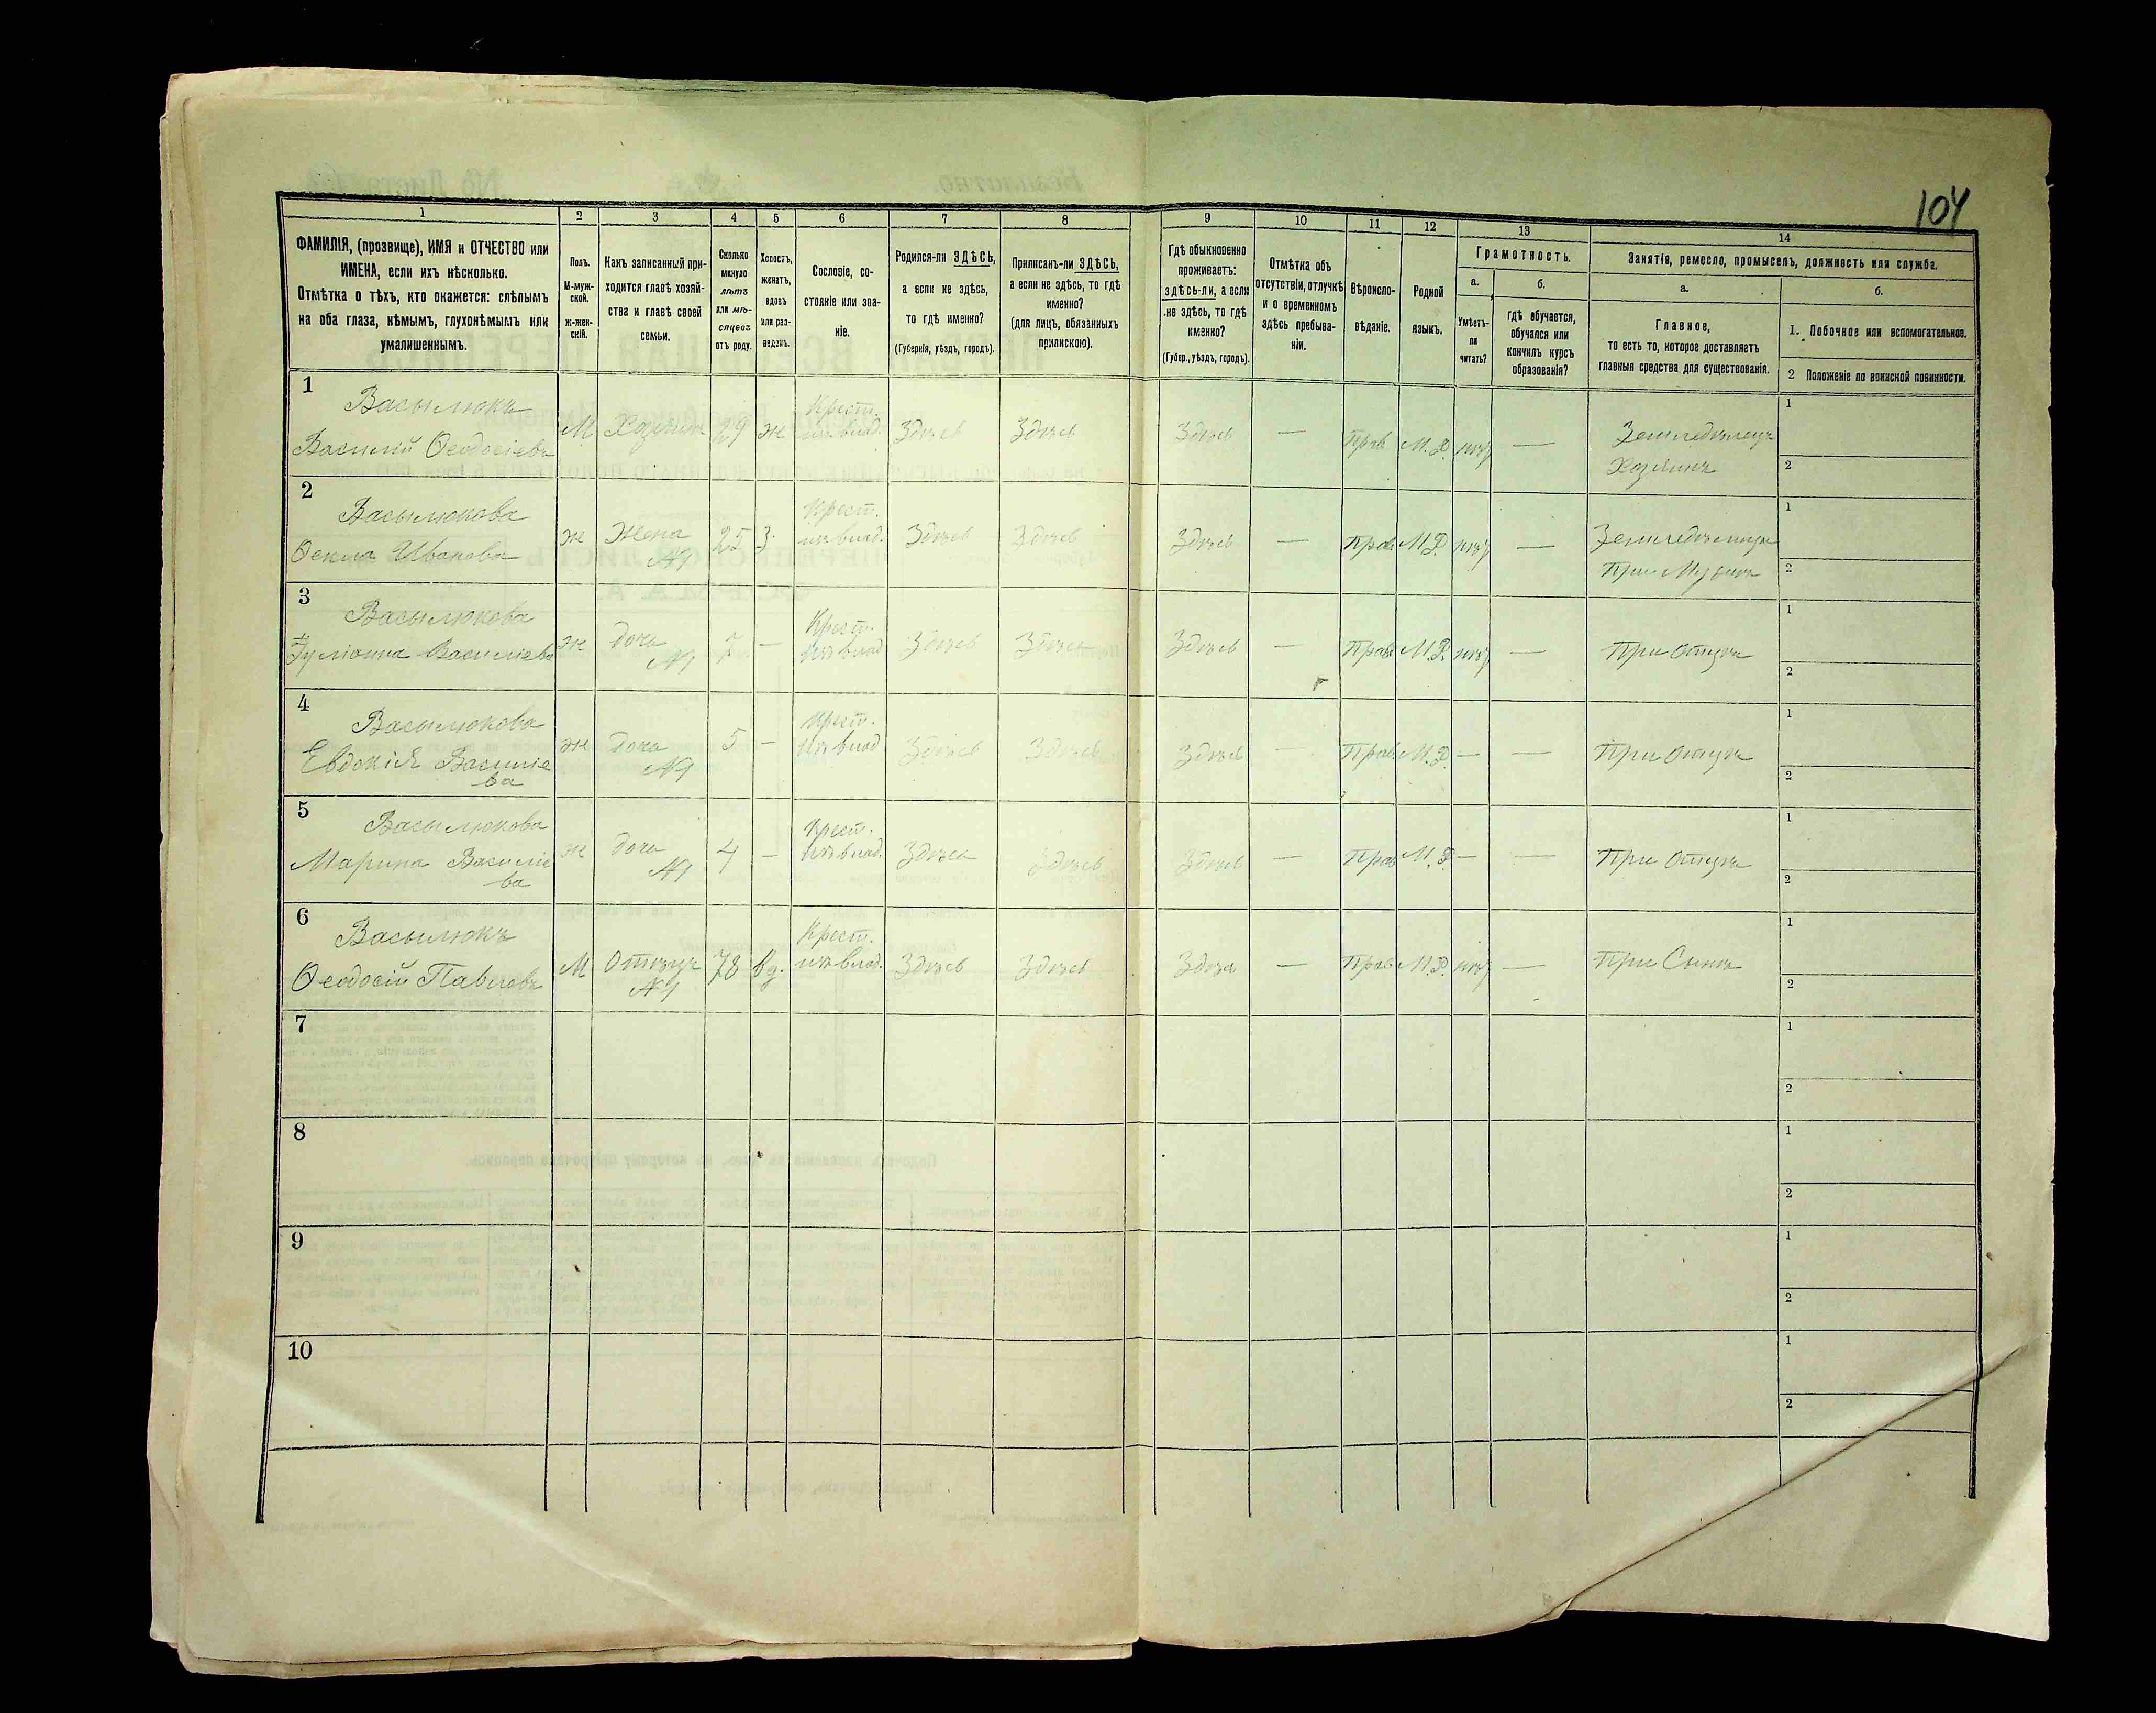 104
1
2
3
4
5
6
7
8
9
10
11
12
13
14
ФАМИЛІЯ, (прозвище), ИМЯ и ОТЧЕСТВО или
ИМЕНА, если ихъ нѣсколько.
Отмѣтка о тѣхъ, кто окажется: слѣпымъ
на оба глаза, нѣмымъ, глухонѣмымъ или
умалишеннымъ.
Полъ.
М-муж-
ской.
ж-жен-
скій.
Какъ записанный при-
ходится главѣ хозяй-
ства и главѣ своей
семьи.
Сколько
минуло
лѣтъ
или мѣ-
сяцевъ
отъ роду.
Холостъ,
женатъ,
вдовъ
или раз-
веденъ.
Сословіе, со-
стояніе или зва-
ніе.
Родился-ли ЗДѢСЬ,
а если не здѣсь,
то гдѣ именно?
(Губернія, уѣздъ, городъ).
Приписанъ-ли ЗДѢСЬ,
а если не здѣсь, то гдѣ
именно?
(для лицъ, обязанныхъ
припискою).
Гдѣ обыкновенно
проживаетъ:
здѣсь-ли, а если
не здѣсь, то гдѣ
именно?
(Губер., уѣздъ, городъ).
Отмѣтка объ
отсутствіи, отлучкѣ
и о временномъ
здѣсь пребыва-
ніи.
Вѣроиспо-
вѣданіе.
Родной
языкъ.
Грамотность.
а.
Умѣетъ-
ли
читать?
б.
гдѣ обучается,
обучался или
кончилъ курсъ
образованія?
Занятія, ремесло, промыселъ, должность или служба.
а.
Главное,
то есть то, которое доставляетъ
главныя средства для существованія.
б.
1. Побочное или вспомогательное.
2 Положеніе по воинской повинности.
1
Васылюкъ
Василій Ѳеодосіевъ
М
Хозяинъ
29
ж
Крест.
изъ влад.
Здѣсь
Здѣсь
Здѣсь
—
Прав.
М. Р.
нѣт
—
Земледѣлецъ
Хозяинъ
1
2
2
Васылюкова
Ѳекла Иванова
ж
Жена
№1
25
З.
Крест.
изъ влад.
Здѣсь
Здѣсь
Здѣсь
—
Прав.
М. Р.
нѣт
—
При Мужѣ
1
2
3
Васылюкова
Іуліанна Василіева
ж
дочь
№1
7
—
Крест.
изъ влад
Здѣсь
Здѣсь
Здѣсь
—
Прав.
М. Р.
нѣт
—
При Отцѣ
1
2
4
Васылюкова
Евдокія Василіе
ва
ж
дочь
№1
5
—
Крест.
изъ влад
Здѣсь
Здѣсь
Здѣсь
—
Прав.
М. Р.
—
—
При Отцѣ
1
2
5
Васылюкова
Марина Василіе
ва
ж
дочь
№1
4
—
Крест.
изъ влад.
Здѣсь
Здѣсь
Здѣсь
—
Прав
М. Р.
—
—
При Отцѣ
1
2
6
Васылюкъ
Ѳеодосій Павловъ
М
Отецъ
№1
78
вд.
Крест.
изъ влад.
Здѣсь
Здѣсь
Здѣсь
—
Прав.
М. Р.
нѣт
—
При Сынѣ
1
2
7
1
2
8
1
2
9
1
2
10
1
2